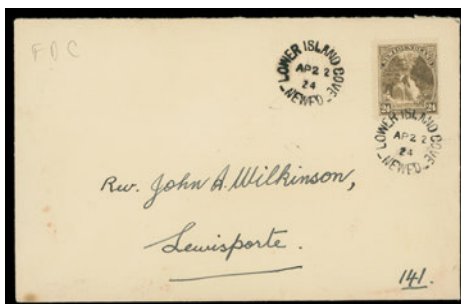 FDC
LOWER ISLAND COVE
AP 22
24
NEWFD
24
24
LOWER ISLAND COVE
AP 22
24
NEWFD
Rev. John A. Wilkinson,
Lewisporte.
141.